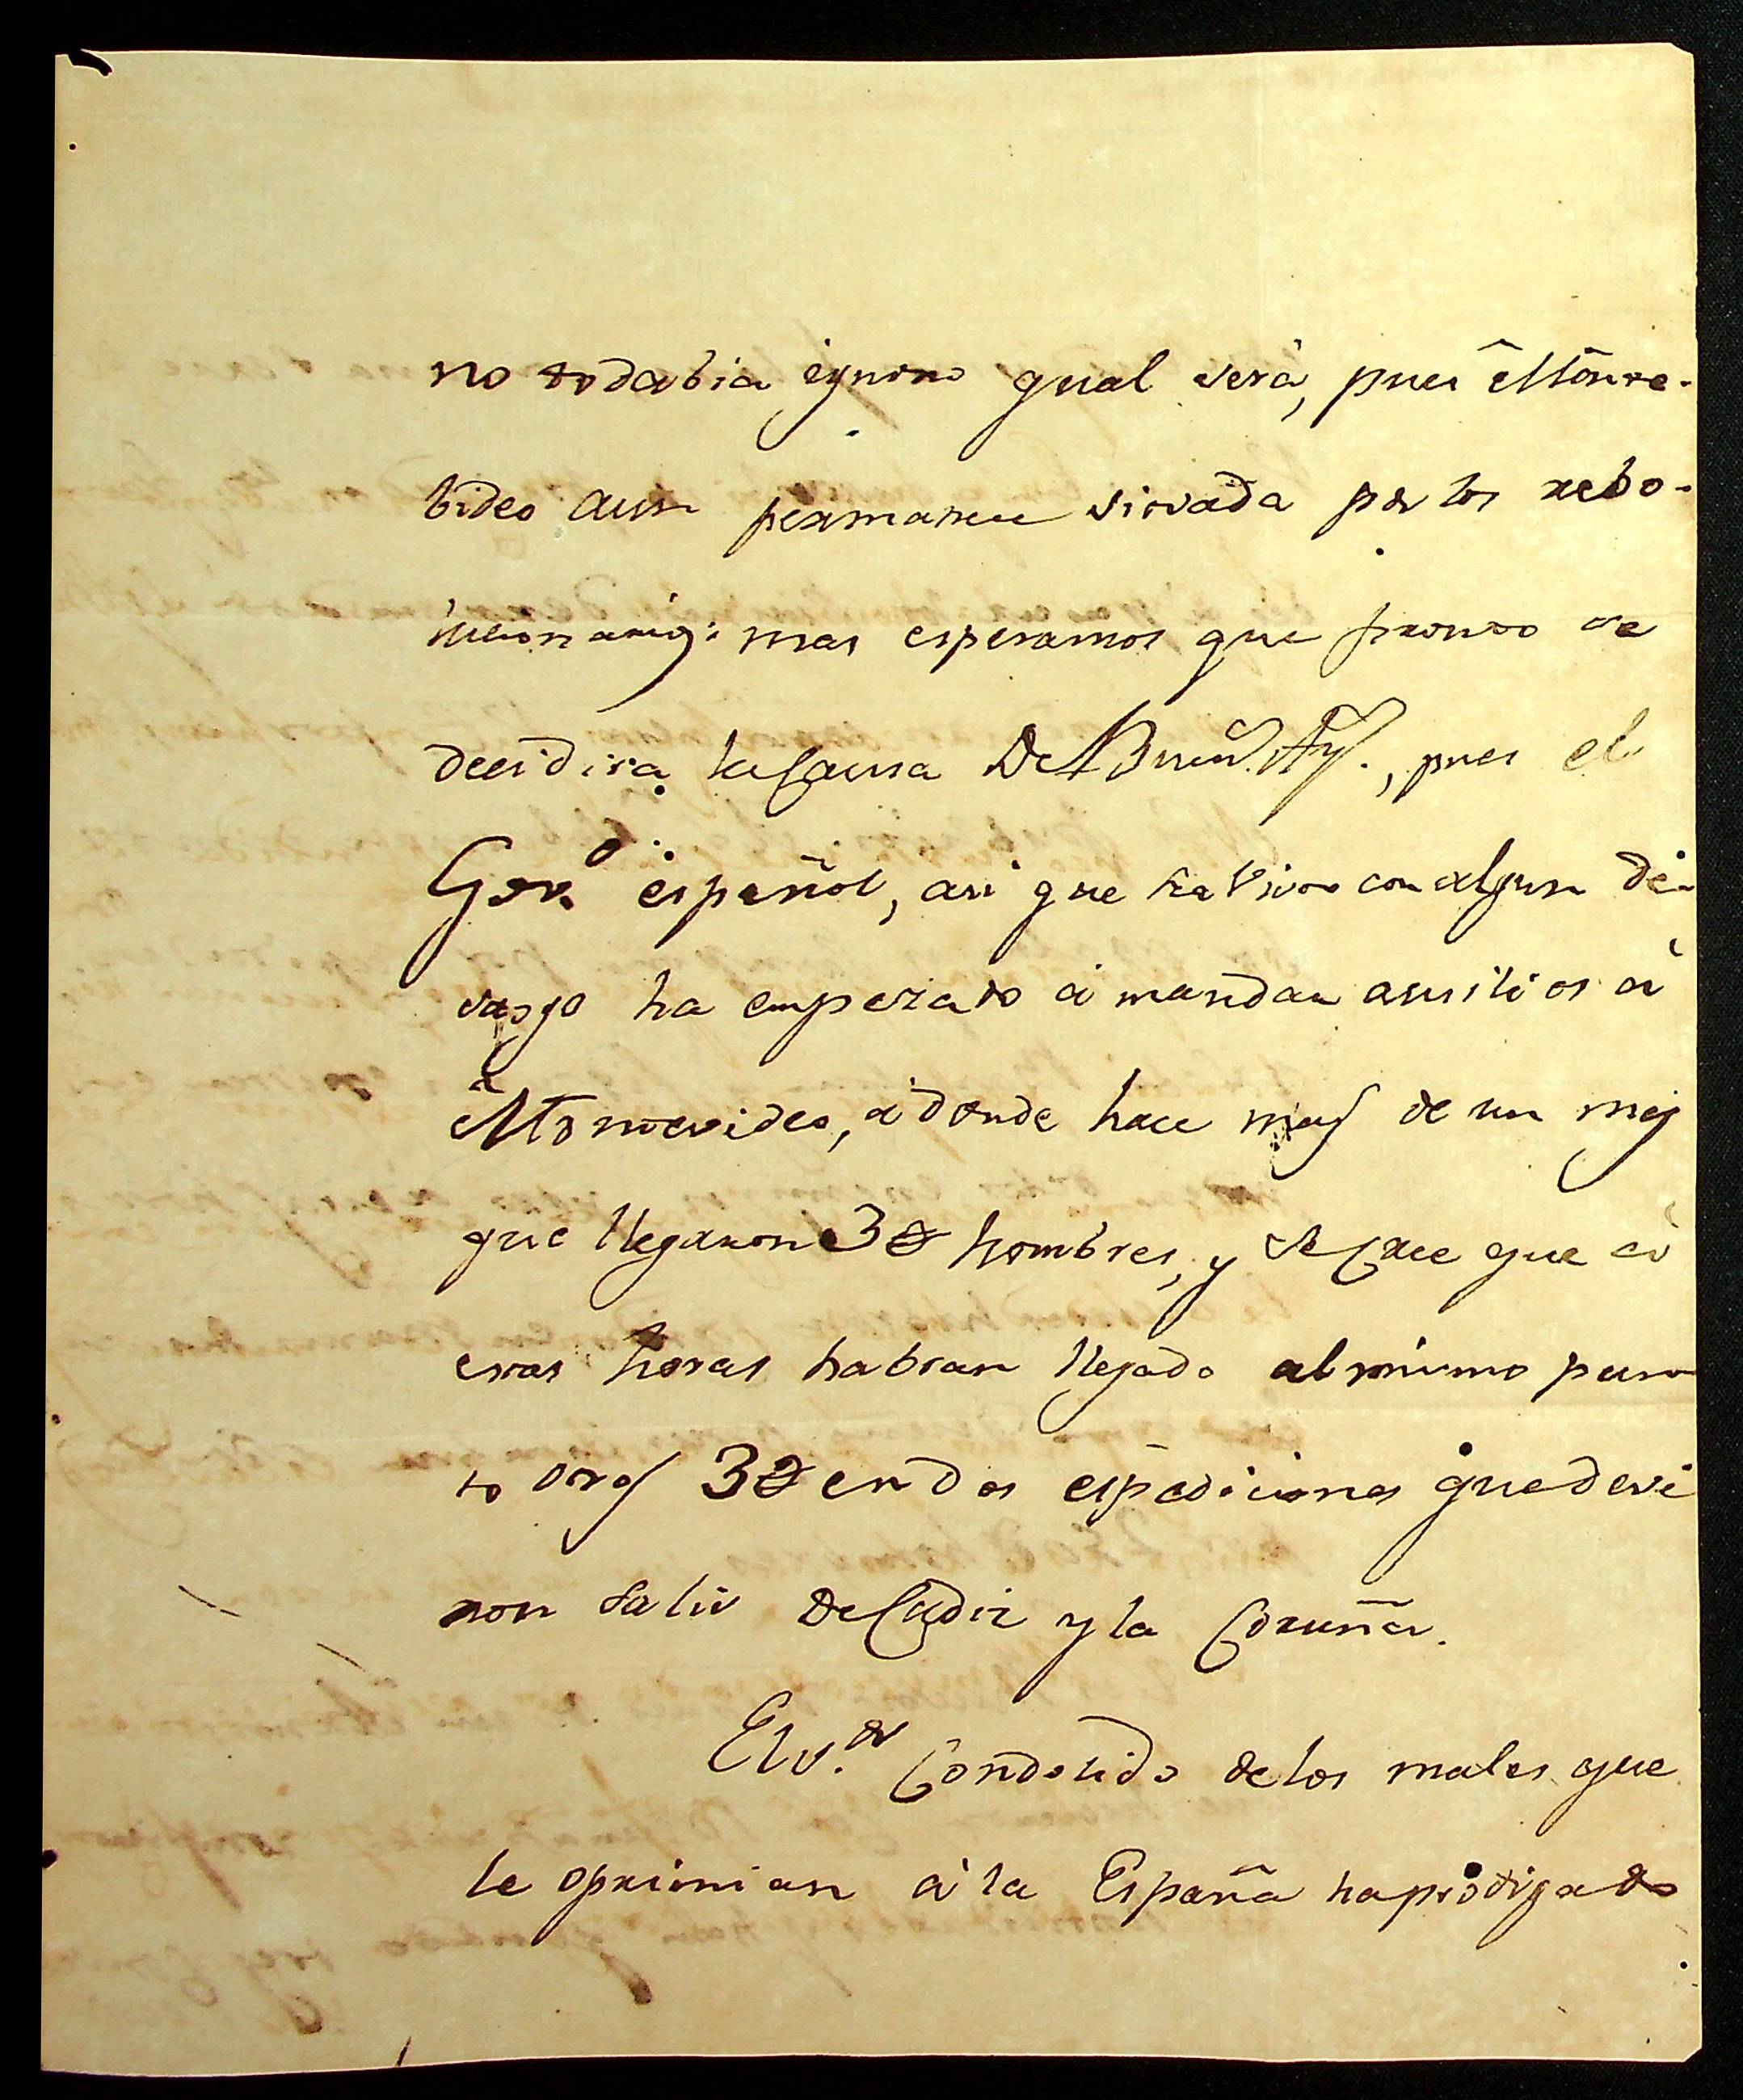 no todabia ignoro qual será, pues Monte-
bideo aun permanece sitiada por los rebo-
lucionarios: mas esperamos que pronto se
decidira la Causa De Buen.s Ay.s, pues el
Gov.no español, asi que se á visto con algun de-
saogo ha empezado á mandar ausilios á
Montevideo, á donde hace mas de un mes
que llegaron 3@ hombres, y se Cree que á
estas horas habran llegado al mismo pun-
to otros 3@ en dos espediciones que devi
ron salir De Cadiz y la Coruña.
El S.or Condolido de los males que
le oprimian á la España ha prodigado